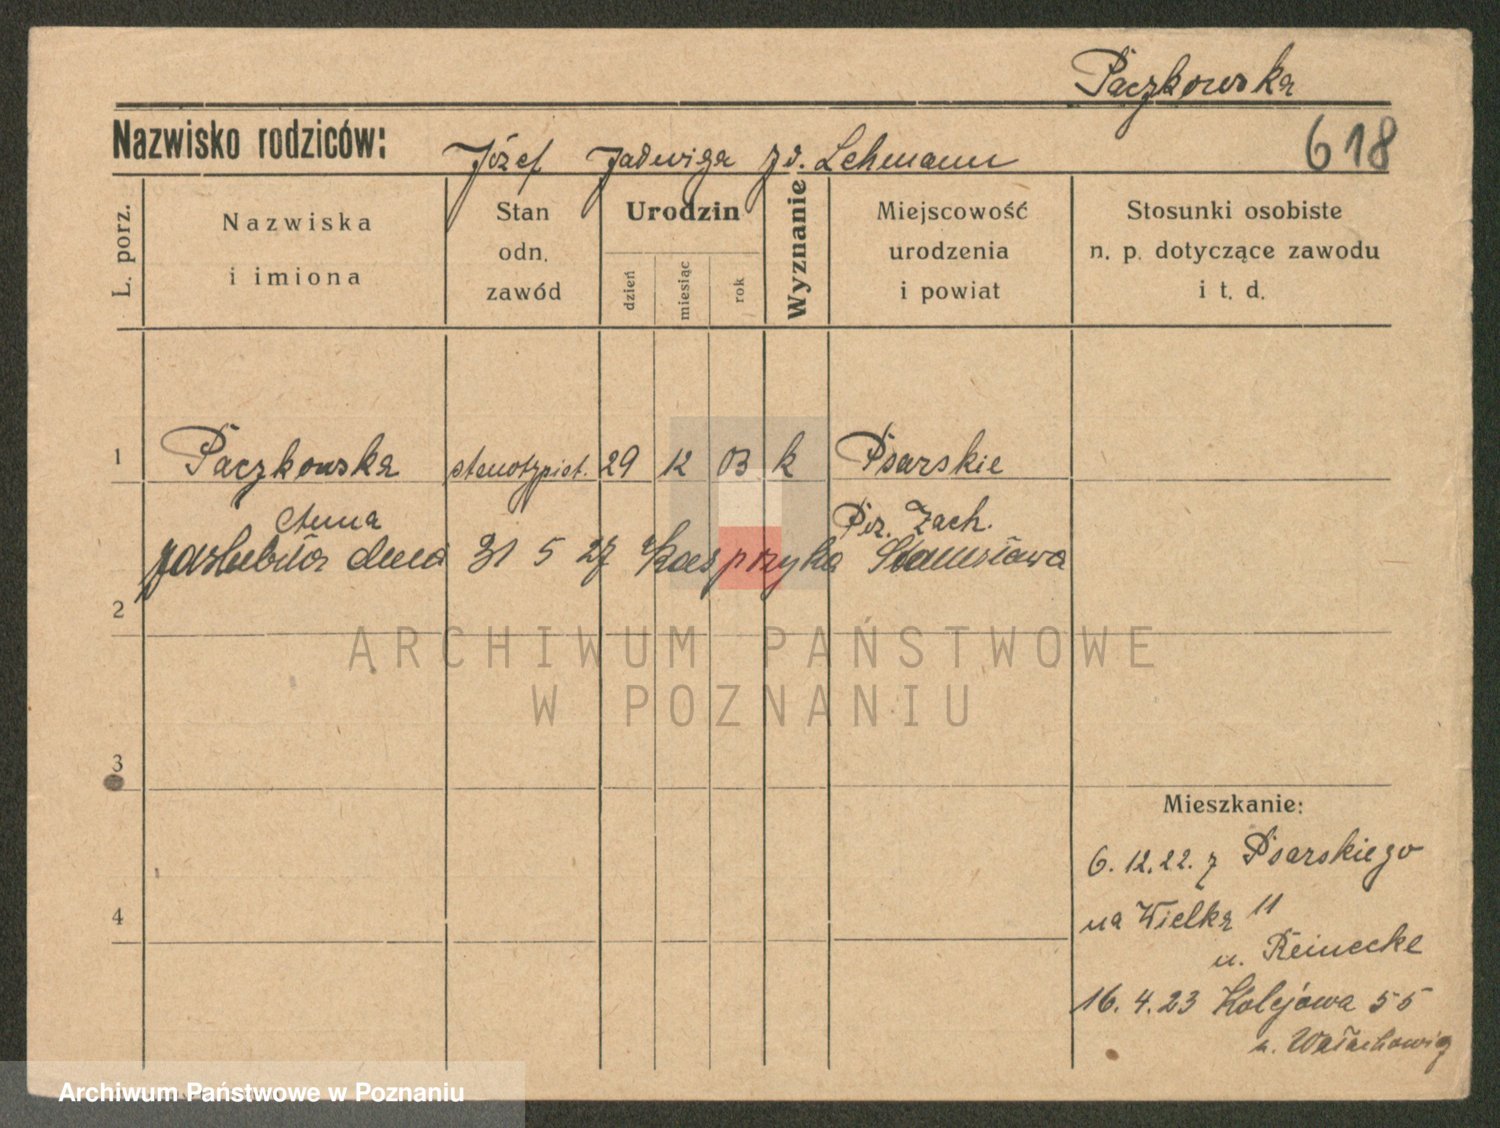 Paczkowska
Nazwisko rodziców: Józef Jadwiga zd. Lehmann
618
L. porz.
Nazwiska
i imiona
Stan
odn.
zawód
Urodzin
dzień
miesiąc
rok
Wyznanie
Miejscowość
urodzenia
i powiat
Stosunki osobiste
n. p. dotyczące zawodu
i t. d.
1 Paczkowska stenotypist. 29 12 03 k Psarskie
Anna Poz. Zach.
poślubiła dnia 31 5 27 Kasprzyka Stanisława
2
ARCHIWUM PAŃSTWOWE
W POZNANIU
3
Mieszkanie:
6. 12. 22. z Psarskiego
4
na Wielką 11
u. Reinecke
16. 4. 23 Kolejowa 55
u. Wałachowig
Archiwum Państwowe w Poznaniu